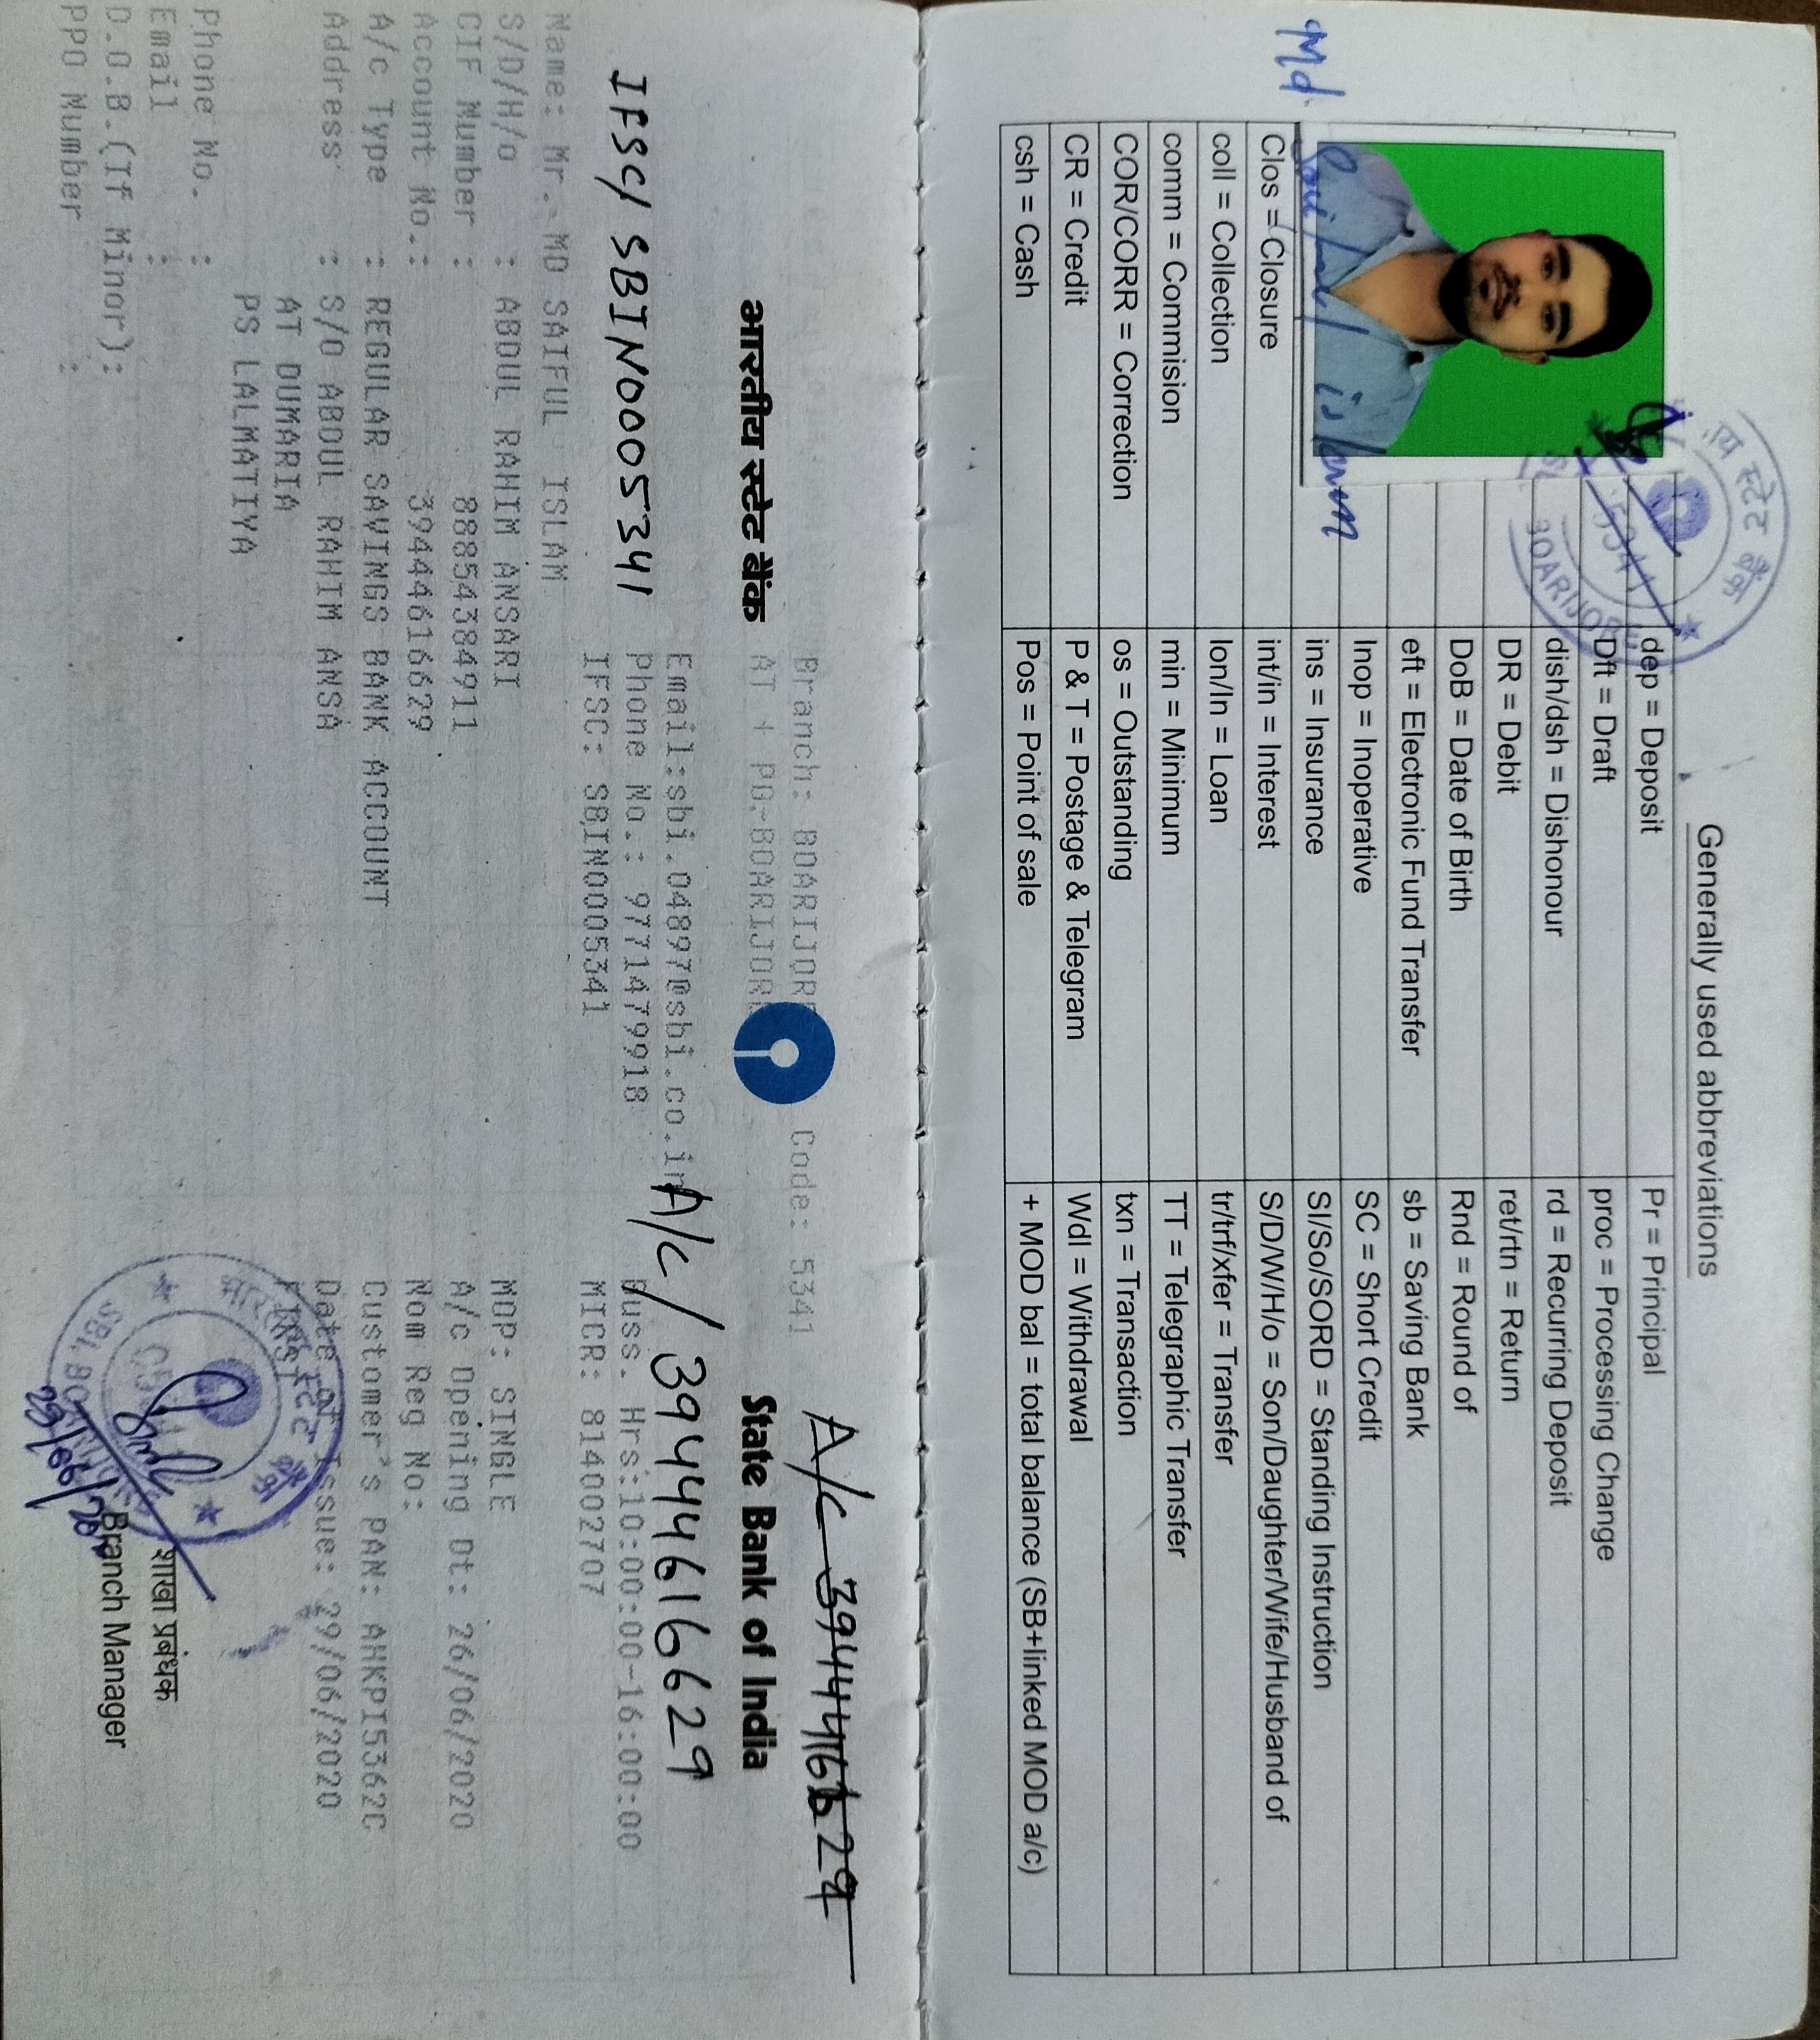 Generally used abbreviations
dep = Deposit Pr = Principal
Dft = Draft proc = Processing Change
dish/dsh = Dishonour rd = Recurring Deposit
DR = Debit ret/rtn = Return
DoB = Date of Birth Rnd = Round of
eft = Electronic Fund Transfer sb = Saving Bank
Inop = Inoperative SC = Short Credit
ins = Insurance SI/So/SORD = Standing Instruction
Clos = Closure int/in = Interest S/D/W/H/o = Son/Daughter/Wife/Husband of
coll = Collection lon/ln = Loan tr/trf/xfer = Transfer
comm = Commision min = Minimum TT = Telegraphic Transfer
COR/CORR = Correction os = Outstanding txn = Transaction
CR = Credit P & T = Postage & Telegram Wdl = Withdrawal
csh = Cash Pos = Point of sale + MOD bal = total balance (SB+linked MOD a/c)
Md
islam
स्टेट बैंक
5341
A/C 39444616629
Branch: BOARIJORE Code: 5341
भारतीय स्टेट बैंक State Bank of India
AT + PO-BOARIJORE
Email:sbi.04897@sbi.co.in
A/c/ 39444616629
Phone No.: 9771479918 Buss. Hrs:10:00:00-16:00:00
IFSC/ SBIN0005341
IFSC: SBIN0005341 MICR: 814002707
Name: Mr. MD SAIFUL ISLAM
S/D/H/o : ABDUL RAHIM ANSARI MOP: SINGLE
CIF Number : 88854384911 A/c Opening Dt: 26/06/2020
Account No.: 39444616629 Nom Reg No:
A/c Type : REGULAR SAVINGS BANK ACCOUNT Customer's PAN: AHKPI5362C
Address : S/O ABDUL RAHIM ANSA Date of Issue: 29/06/2020
AT DUMARIA
PS LALMATIYA
Phone No. :
Email :
D.O.B.(If Minor):
PPO Number :
शाखा प्रबंधक
Branch Manager